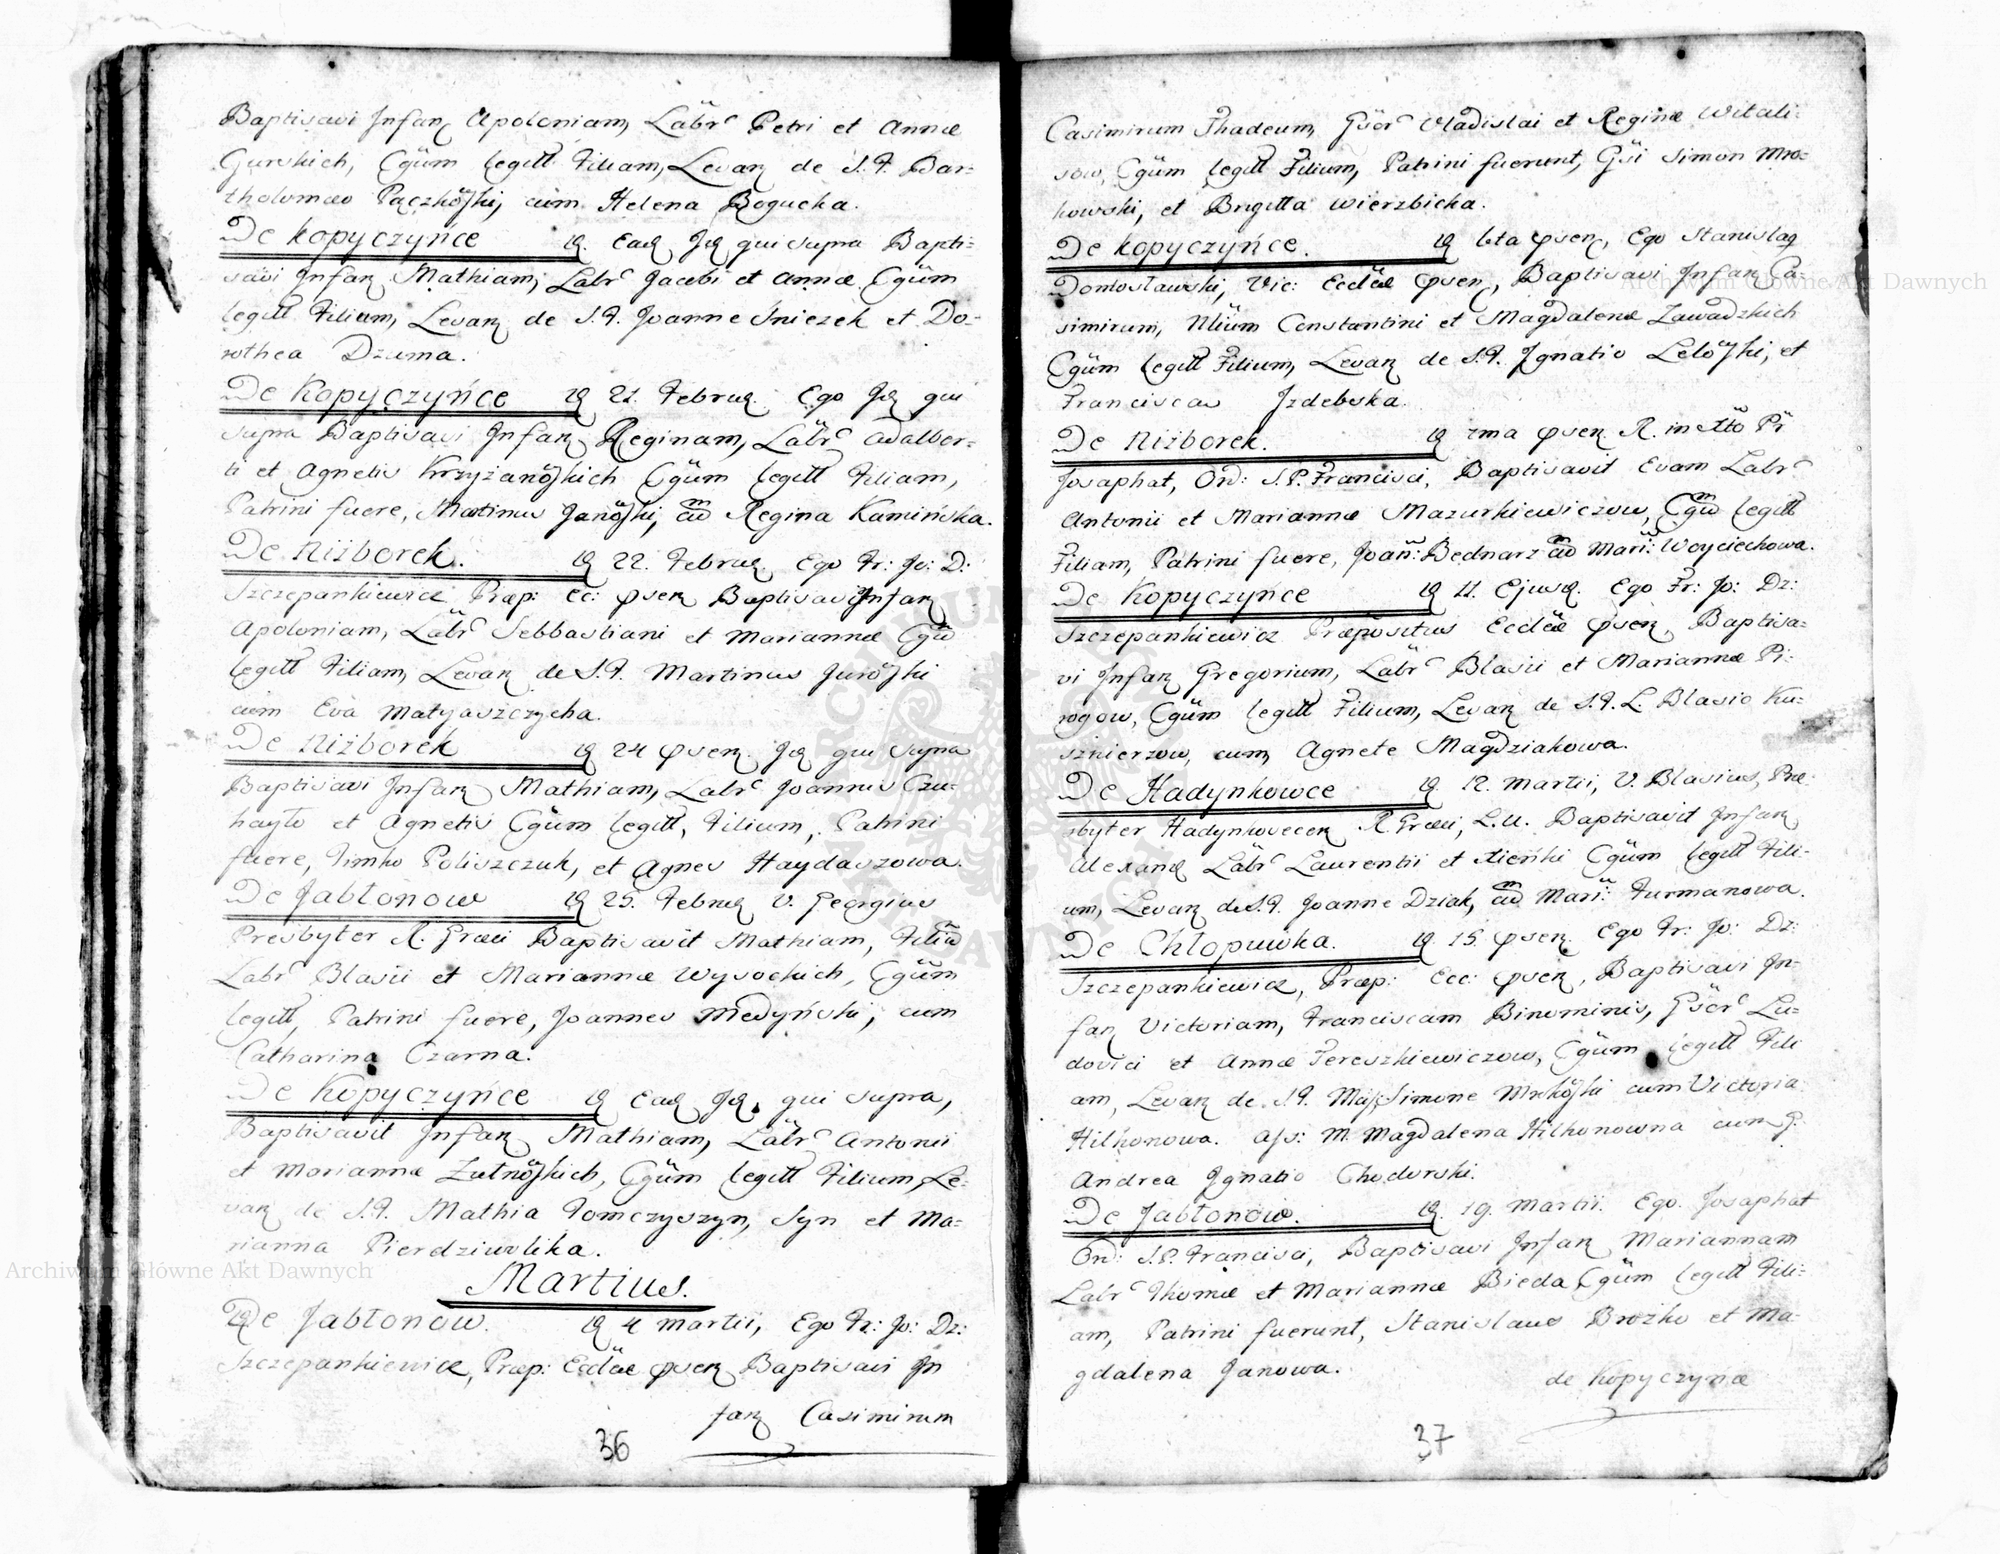 Baptisavi Infan Apoloniam, Labr Petri et Annæ
Gurskich, Cgum legitt Filiam, Levan de S. F. Bar=
tholomæo Pączkoski, cum Helena Bogucka.
De Kopyczyńce Ead qui supra Bapti=
savi Infan Mathiam, Labr Jacobi et Annæ Cgum
legitt Filium, Levan de S. F. Joanne Śniezek et Do=
rothea Dzuma.
De Kopyczyńce 21. Februa Ego qui
supra Baptisavi Infan Reginam, Labr Adalber=
ti et Agnetis Krzyżanoskich Cgum legitt Filiam,
Patrini fuere, Martinus Janoski, cu Regina Kamińska.
De Niżborek. 22. Februa Ego Fr: Jo: D:
Szczepankiewicz Præp: Ec: psen Baptisavi Infan
Apoloniam, Labr Sebbastiani et Mariannæ Cgu
legitt Filiam, Levan de S. F. Martinus Juroski
cum Eva Matyaszczycha.
De Niżborek 24 psen qui supra
Baptisavi Infan Mathiam, Labr Joannis Czu=
hayło et Agnetis Cgum legitt, Filium, Patrini
fuere, Timko Poliszczuk, et Agnes Haydaszowa.
De Jabłonow 25. Februa V. Georgius
Presbyter R. Græci Baptisavit Mathiam, Filiu
Labr Blasii et Mariannæ Wysockich, Cgum
legitt, Patrini fuere, Joannes Medyński, cum
Catharina Czarna.
De Kopyczyńce Ead qui supra,
Baptisavit Infan Mathiam, Labr Antonii
et Mariannæ Lutnoskich, Cgum legitt Filium, Le=
van de S. F. Mathia Tomczyszyn, Syn et Ma=
rianna Pierdziwolika.
Martius.
De Jabłonow. 4 Martii, Ego Fr: Jo: Dz:
Szczepankiewicz, Præp: Eclæ psen Baptisavi In
fan Casimirum
36
Casimirum Thadeum, Gser Vladislai et Reginæ Witali=
sow, Cgum legitt Filium, Patrini fuerunt, Gsi Simon Mro=
kowski, et Brigitta Wierzbicka.
De Kopyczyńce. 6ta psen, Ego Stanislaq
Domosławski, Vic: Eclæ psen, Baptisavi Infan Ca=
simirum, Constantini et Magdalenæ Zawadzkich
Cgum legitt Filium, Levan de S. F. Ignatio Leloski, et
Francisca Izdebska.
De Niżborek. 7ma psen R. in Xto Pr
Josaphat, Ord: S. P. Francisci, Baptisavit Evam Labr
Antonii et Mariannæ Mazurkiewiczow, Cgu legitt
Filiam, Patrini fuere, Joan: Bednarz cu Mari: Woyciechowa.
De Kopyczyńce 11. Ejusd. Ego Fr: Jo: Dz:
Szczepankiewicz Præpositus Eclæ psen, Baptisa=
vi Infan Gregorium, Labr Blasii et Mariannæ Pi=
rogow, Cgum legitt Filium, Levan de S. F. L. Blasio Ku=
sznierzow, cum Agnete Magdziakowa.
De Hadynkowce 12. Martii, V. Blasius, Præ=
sbyter Hadynkovecen R. Græci, L. U. Baptisavit Infan
Alexand Labr Laurentii et Cgum legitt Fili=
um, Levan de S. F. Joanne Dziak, cu Mari: Furmanowa.
De Chłopuwka. 15. psen Ego Fr: Jo: Dz:
Szczepankiewicz, Præp: Ecc: psen, Baptisavi In=
fan Victoriam, Franciscam Binominis, Gser Lu=
dovici et Annæ Tereszkiewiczow, Cgum legitt Fili
am, Levan de S. F. Simone Mrkoski cum Victoria
Hilkonowa. Ass: M. Magdalena Hilkonowna cum G.
Andrea Ignatio Chodorski.
De Jabłonow. 19. Martii. Ego. Josaphat
Ord: S. P. Francisci, Baptisavi Infan Mariannam
Labr Thomæ et Mariannæ Bieda Cgum legitt Fili=
am, Patrini fuerunt, Stanislaus Brożko et Ma=
gdalena Janowa.
de Kopyczync
37
Archiwum Główne Akt Dawnych
Archiwum Główne Akt Dawnych
ARCHIWUM GŁÓWNE AKT DAWNYCH